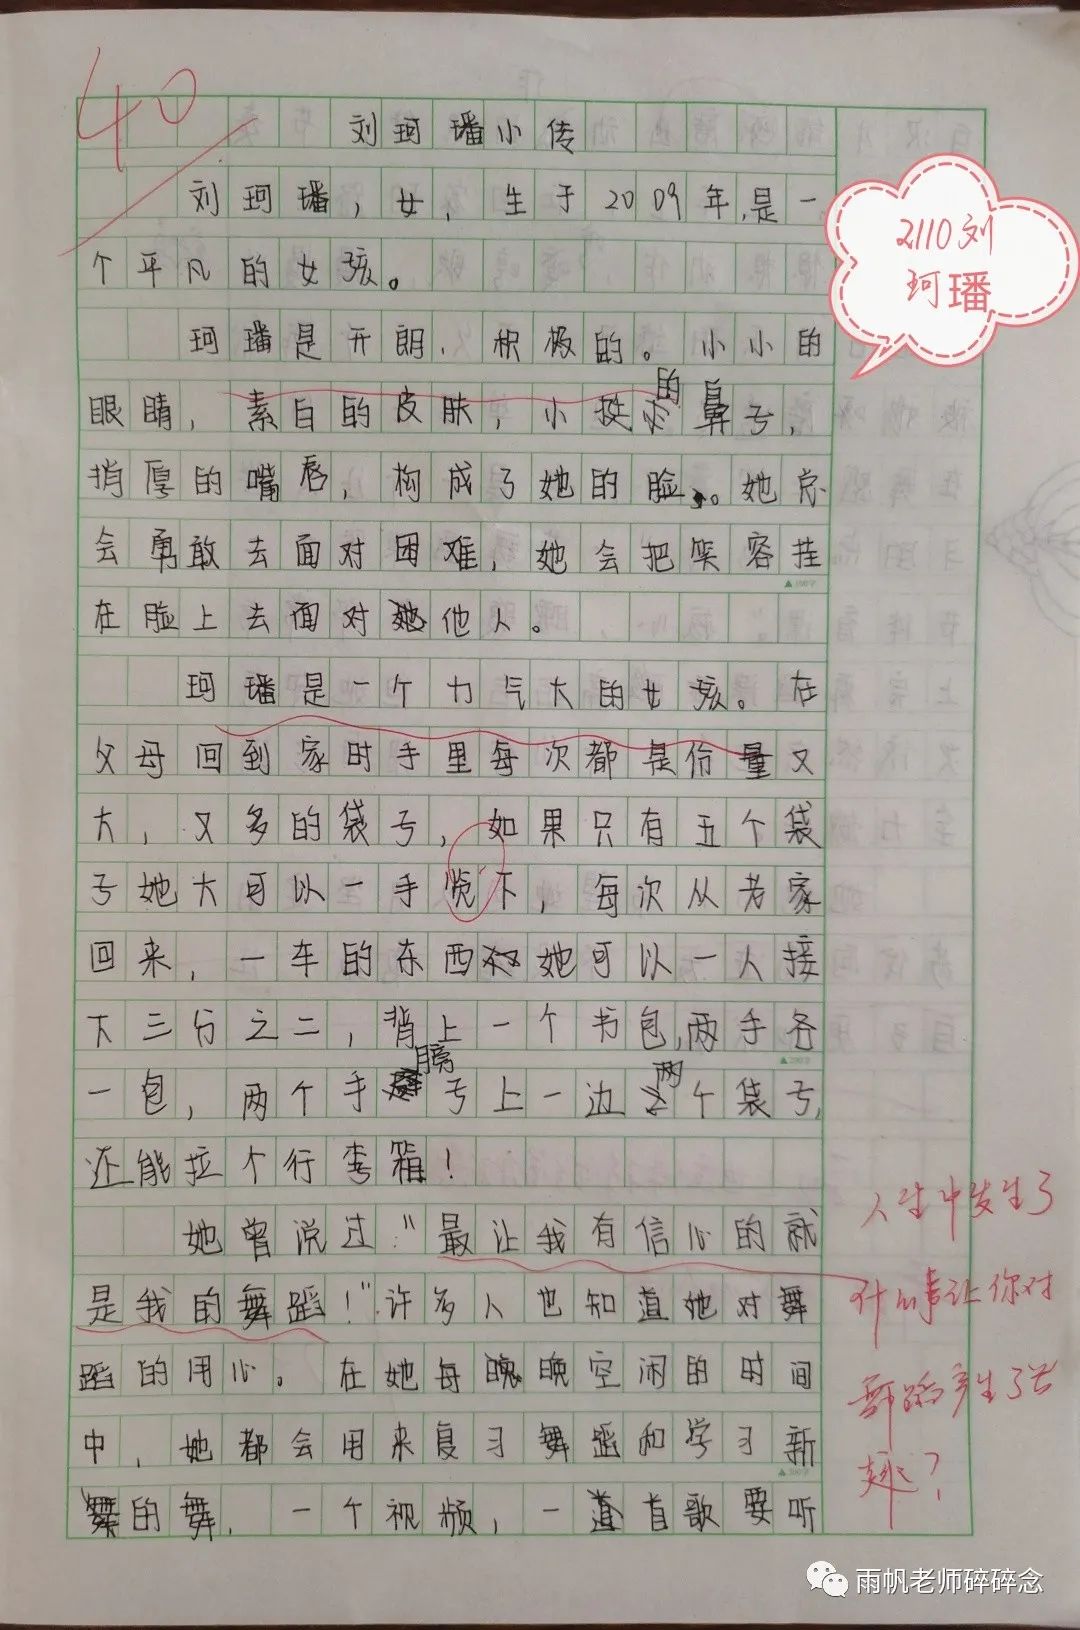 40
刘珂璠小传
刘珂璠，女，生于2009年，是一
个平凡的女孩。
珂璠是开朗、积极的。小小的
眼睛，素白的皮肤，小挺的鼻子，
捎厚的嘴唇，构成了她的脸。她总
会勇敢去面对困难，她会把笑容挂
在脸上去面对他人。
珂璠是一个力气大的女孩。在
父母回到家时手里每次都是份量又
大，又多的袋子，如果只有五个袋
子她大可以一手揽下，每次从老家
回来，一车的东西她可以一人接
下三分之二，背上一个书包，两手各
一包，两个手膀子上一边两个袋子，
还能拉个行李箱！
她曾说过：“最让我有信心的就
是我的舞蹈！”许多人也知道她对舞
蹈的用心。在她每晚空闲的时间
中，她都会用来复习舞蹈和学习新
的舞，一个视频，一首歌要听
2110刘
珂璠
人生中发生了
什么事让你对
舞蹈产生了兴
趣？
雨帆老师碎碎念